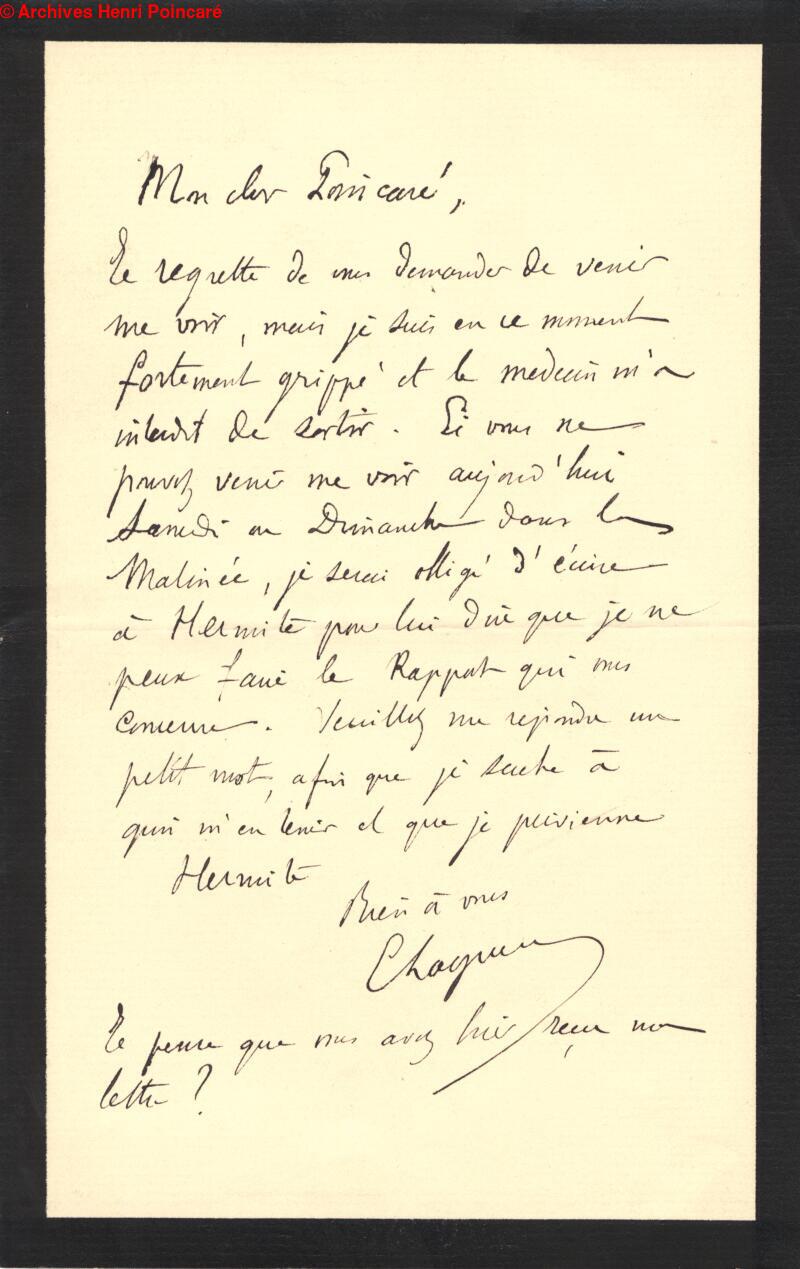 © Archives Henri Poincaré
Mon cher Poincaré,
Je regrette de vous demander de venir
me voir, mais je suis en ce moment
fortement grippé et le medecin m'a
interdit de sortir. Si vous ne
pouvez venir me voir aujourd'hui
Samedi ou Dimanche dans la
Matinée, je serai obligé d'écrire
à Hermite pour lui dire que je ne
peux faire le Rapport qui vous
concerne. Veuillez me repondre un
petit mot, afin que je sache à
quoi m'en tenir et que je previenne
Hermite
Bien à vous
Je pense que vous avez hier reçu ma
lettre ?